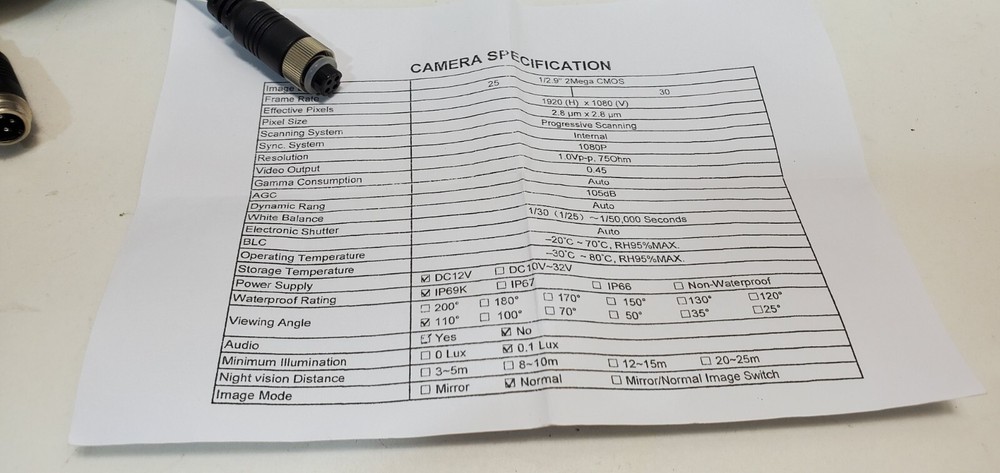 CAMERA SPECIFICATION
Image 1/2.9" 2Mega CMOS
Frame Rate 25 30
Effective Pixels 1920 (H) x 1080 (V)
Pixel Size 2.8 μm x 2.8 μm
Scanning System Progressive Scanning
Sync. System Internal
Resolution 1080P
Video Output 1.0Vp-p, 75Ohm
Gamma Consumption 0.45
AGC Auto
Dynamic Rang 105dB
White Balance Auto
Electronic Shutter 1/30 (1/25) ~1/50,000 Seconds
BLC Auto
Operating Temperature −20℃ ~ 70℃, RH95%MAX.
Storage Temperature −30℃ ~ 80℃, RH95%MAX.
Power Supply ☑ DC12V ☐ DC10V~32V
Waterproof Rating ☑ IP69K ☐ IP67 ☐ IP66 ☐ Non-Waterproof
Viewing Angle ☐ 200° ☐ 180° ☐ 170° ☐ 150° ☐130° ☐120°
☑ 110° ☐ 100° ☐ 70° ☐ 50° ☐35° ☐25°
Audio ☐ Yes ☑ No
Minimum Illumination ☐ 0 Lux ☑ 0.1 Lux
Night vision Distance ☐ 3~5m ☐ 8~10m ☐ 12~15m ☐ 20~25m
Image Mode ☐ Mirror ☑ Normal ☐ Mirror/Normal Image Switch